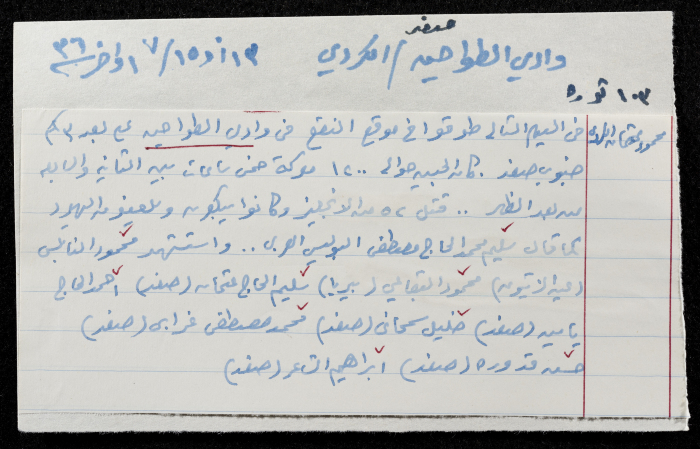 صفد
وادي الطواحين / الكردي ١٣ او ١٥ / ٧ اواخر ٣٦
١٠٣ ثورة
محمود عثمان
في اليوم التالي طوقوا في موقع النقع في وادي الطواحين على بعد ٣ كم
جنوب صفد. كان الجيش حوالي ١٢٠٠ معركة خمس ساعات بين الثانية والسابعة
بعد الظهر .. قتل ٥٢ من الانجليز وكانوا يبكون ويلعنون اليهود
كما قال سليم محمد الحاج مصطفى البوليس العربي .. واستشهد محمود النابلسي
(عين الزيتون) محمود (بيريا) سليم الحاج عثمان (صفد) أحمد الحاج
ياسين (صفد) خليل سمحاني (صفد) محمد مصطفى غزابي (صفد)
حسن قدورة (صفد) ابراهيم الشاعر (صفد)